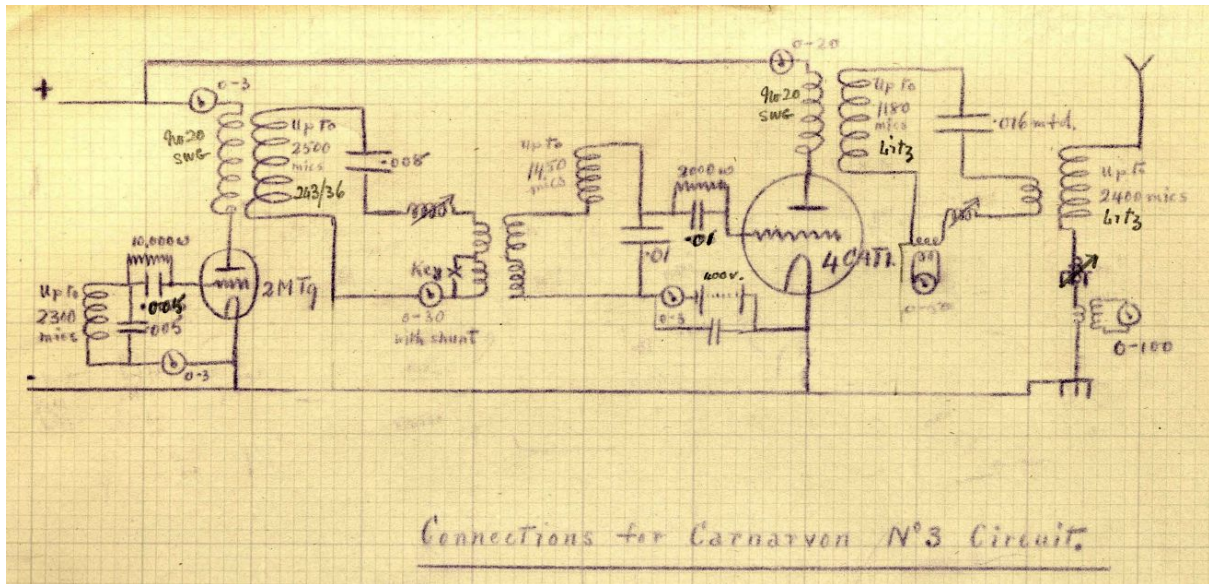 +
0-3
No 20
SWG
Up To
2500
mics
243/36
.005
10,000 ω
Up To
2300
mics
.005
2MT9
0-3
Key
0-30
with shunt
Up To
1450
mics
.01
2000 ω
.01
400 v.
0-3
0-20
No 20
SWG
4 CAT2
Up To
1180
mics
Litz
.016 mfd.
0-50
Up To
2400 mics
Litz
0-100
-
Connections for Carnarvon Nº3 Circuit.